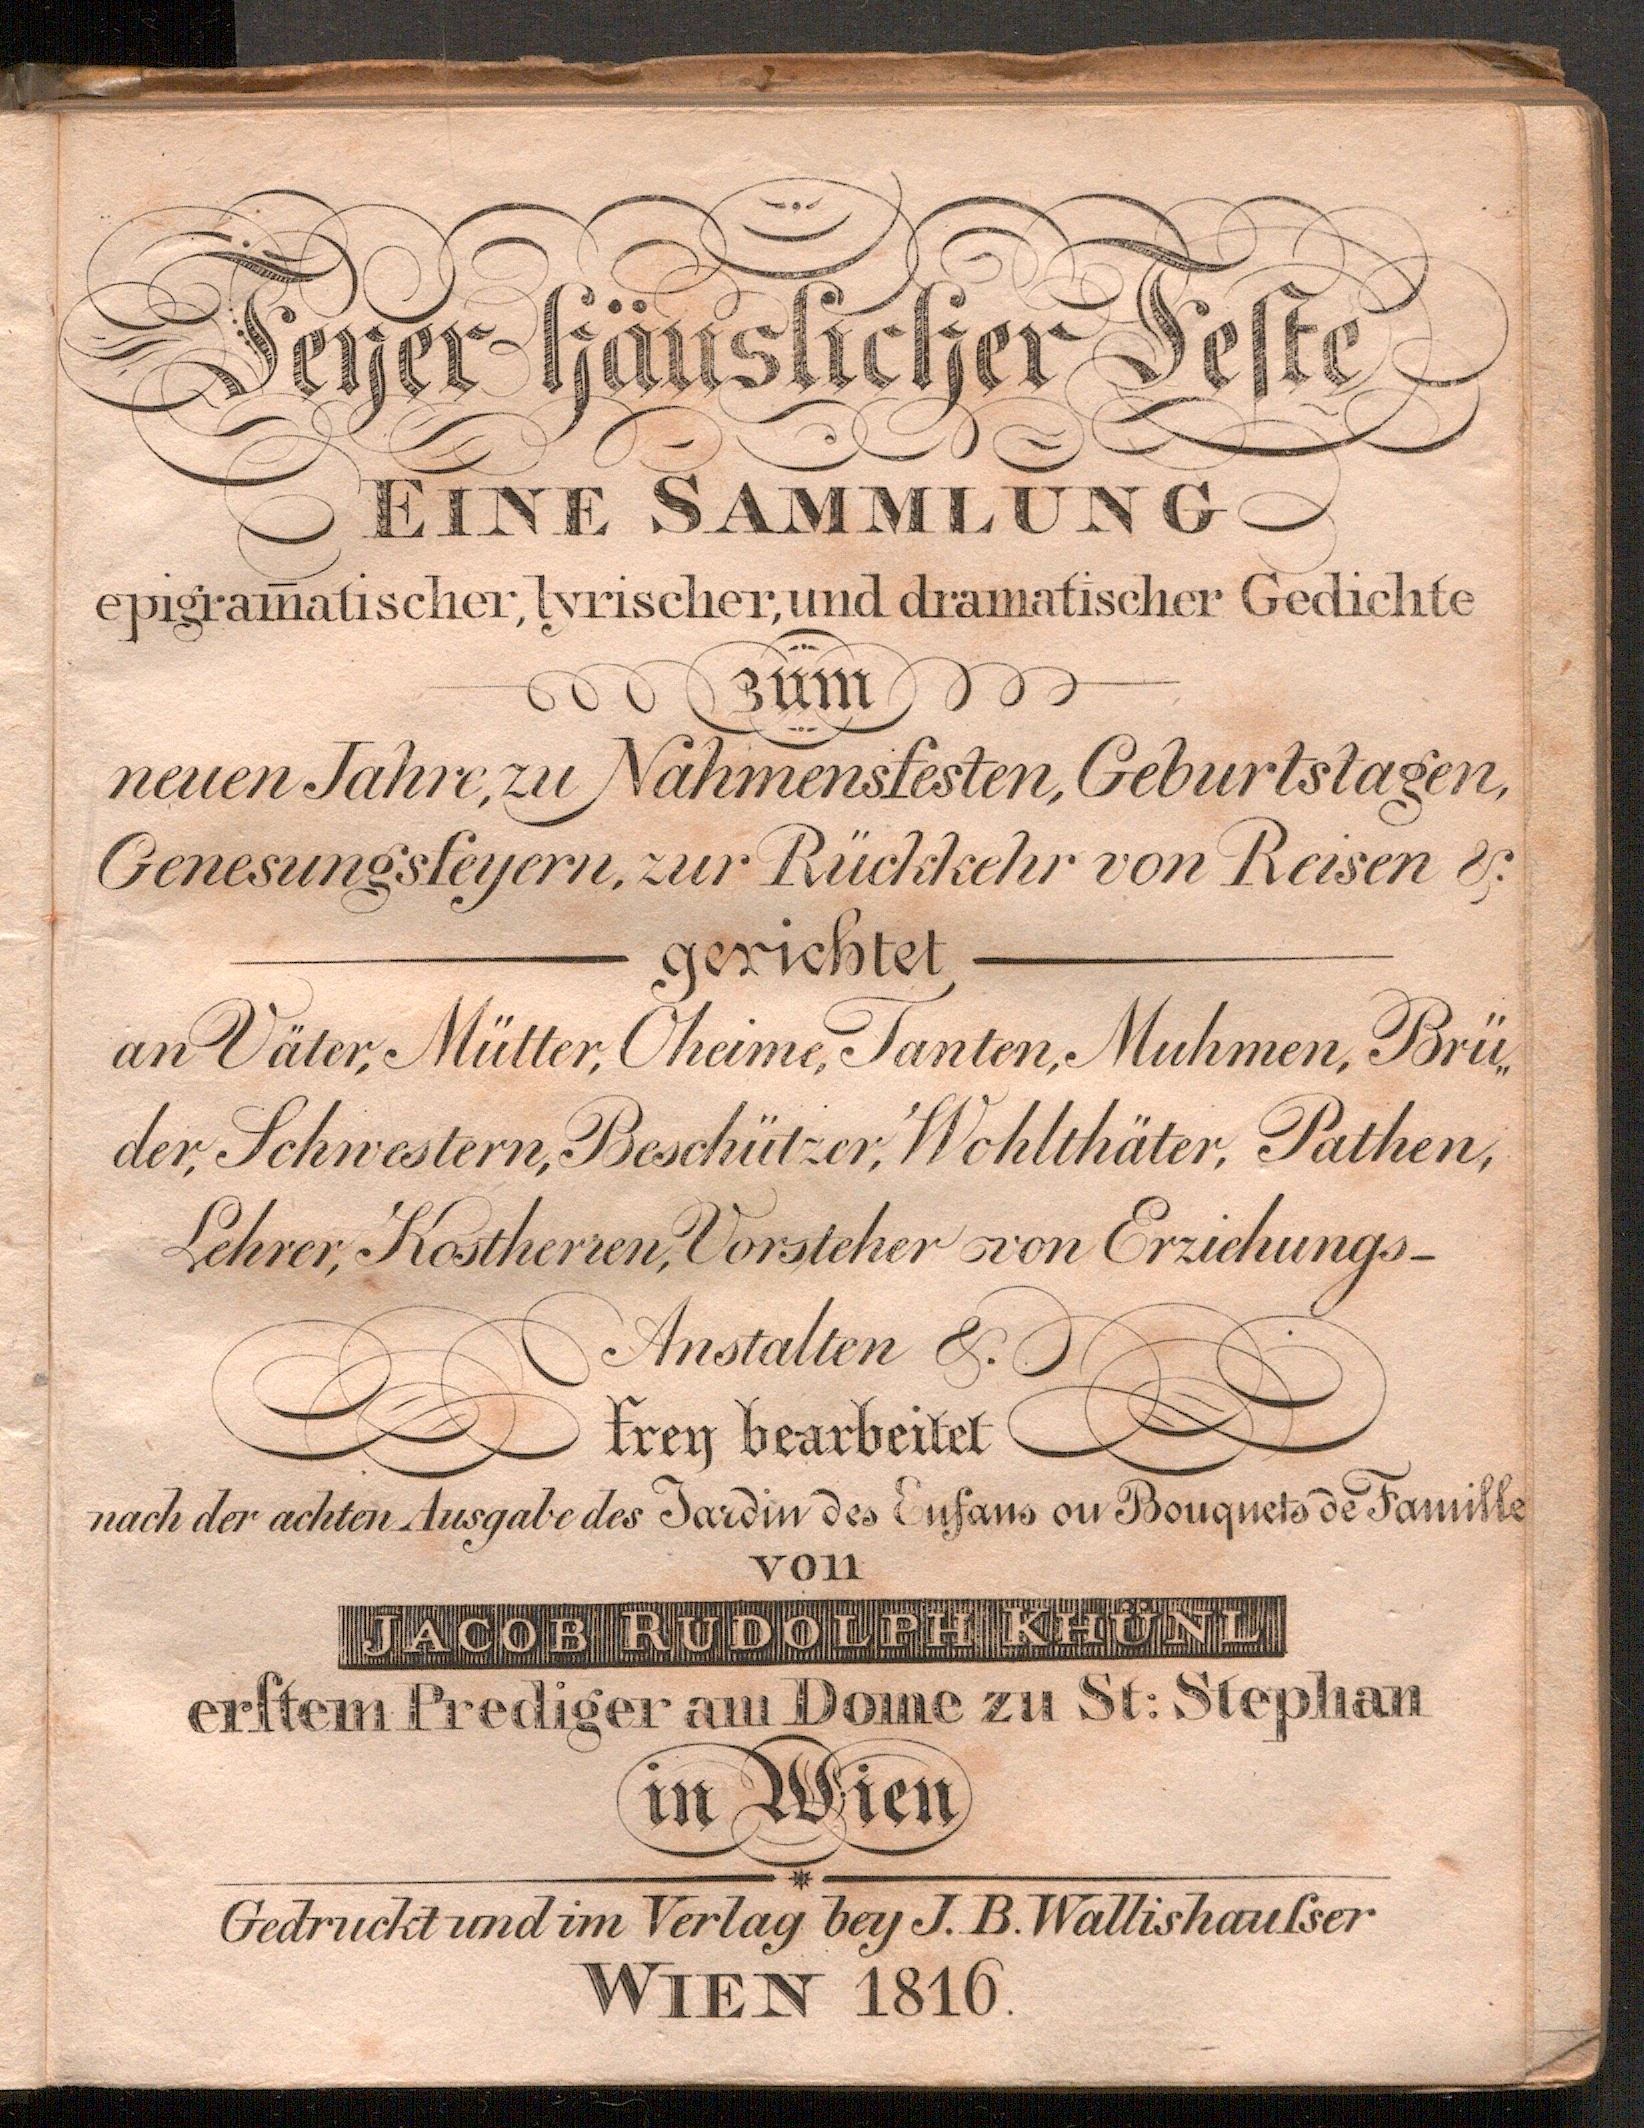 Feyer häuslicher Feſte
EINE SAMMLUNG
epigram̄atischer, lyrischer, und dramatischer Gedichte
zum
neuen Jahre, zu Nahmensfesten, Geburtstagen,
Genesungsfeyern, zur Rückkehr von Reisen &.
gerichtet
an Väter, Mütter, Oheime, Tanten, Muhmen, Brü„
der, Schwestern, Beschützer, Wohlthäter, Pathen,
Lehrer, Kostherren, Vorsteher von Erziehungs-
Anstalten &.
frey bearbeitet
nach der achten Ausgabe des Jardin des Enfans ou Bouquets de Famille
von
JACOB RUDOLPH KHÜNL
erſtem Prediger am Dome zu St: Stephan
in Wien
Gedruckt und im Verlag bey J. B. Wallishauſser
WIEN 1816.